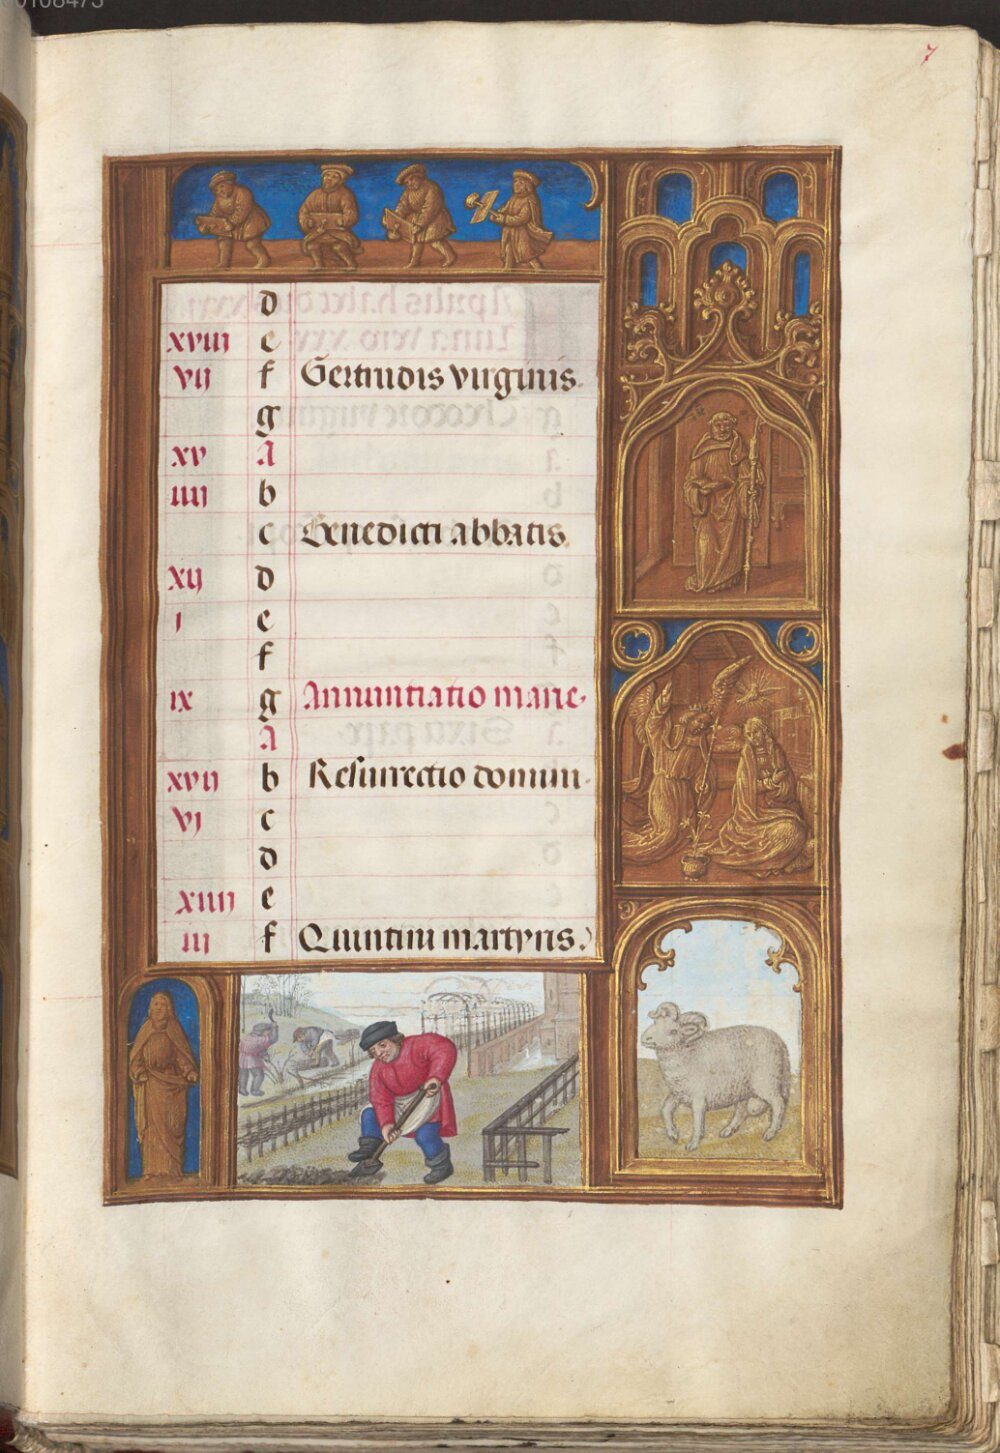 7
d
xviii e
vij f Gertrudis virginis.
g
xv A
iiij b
c Benedicti abbatis.
xij d
i e
f
ix g Annuntiatio marie.
A
xvij b Resurrectio domini.
vi c
d
xiiij e
iij f Quintini martyris.